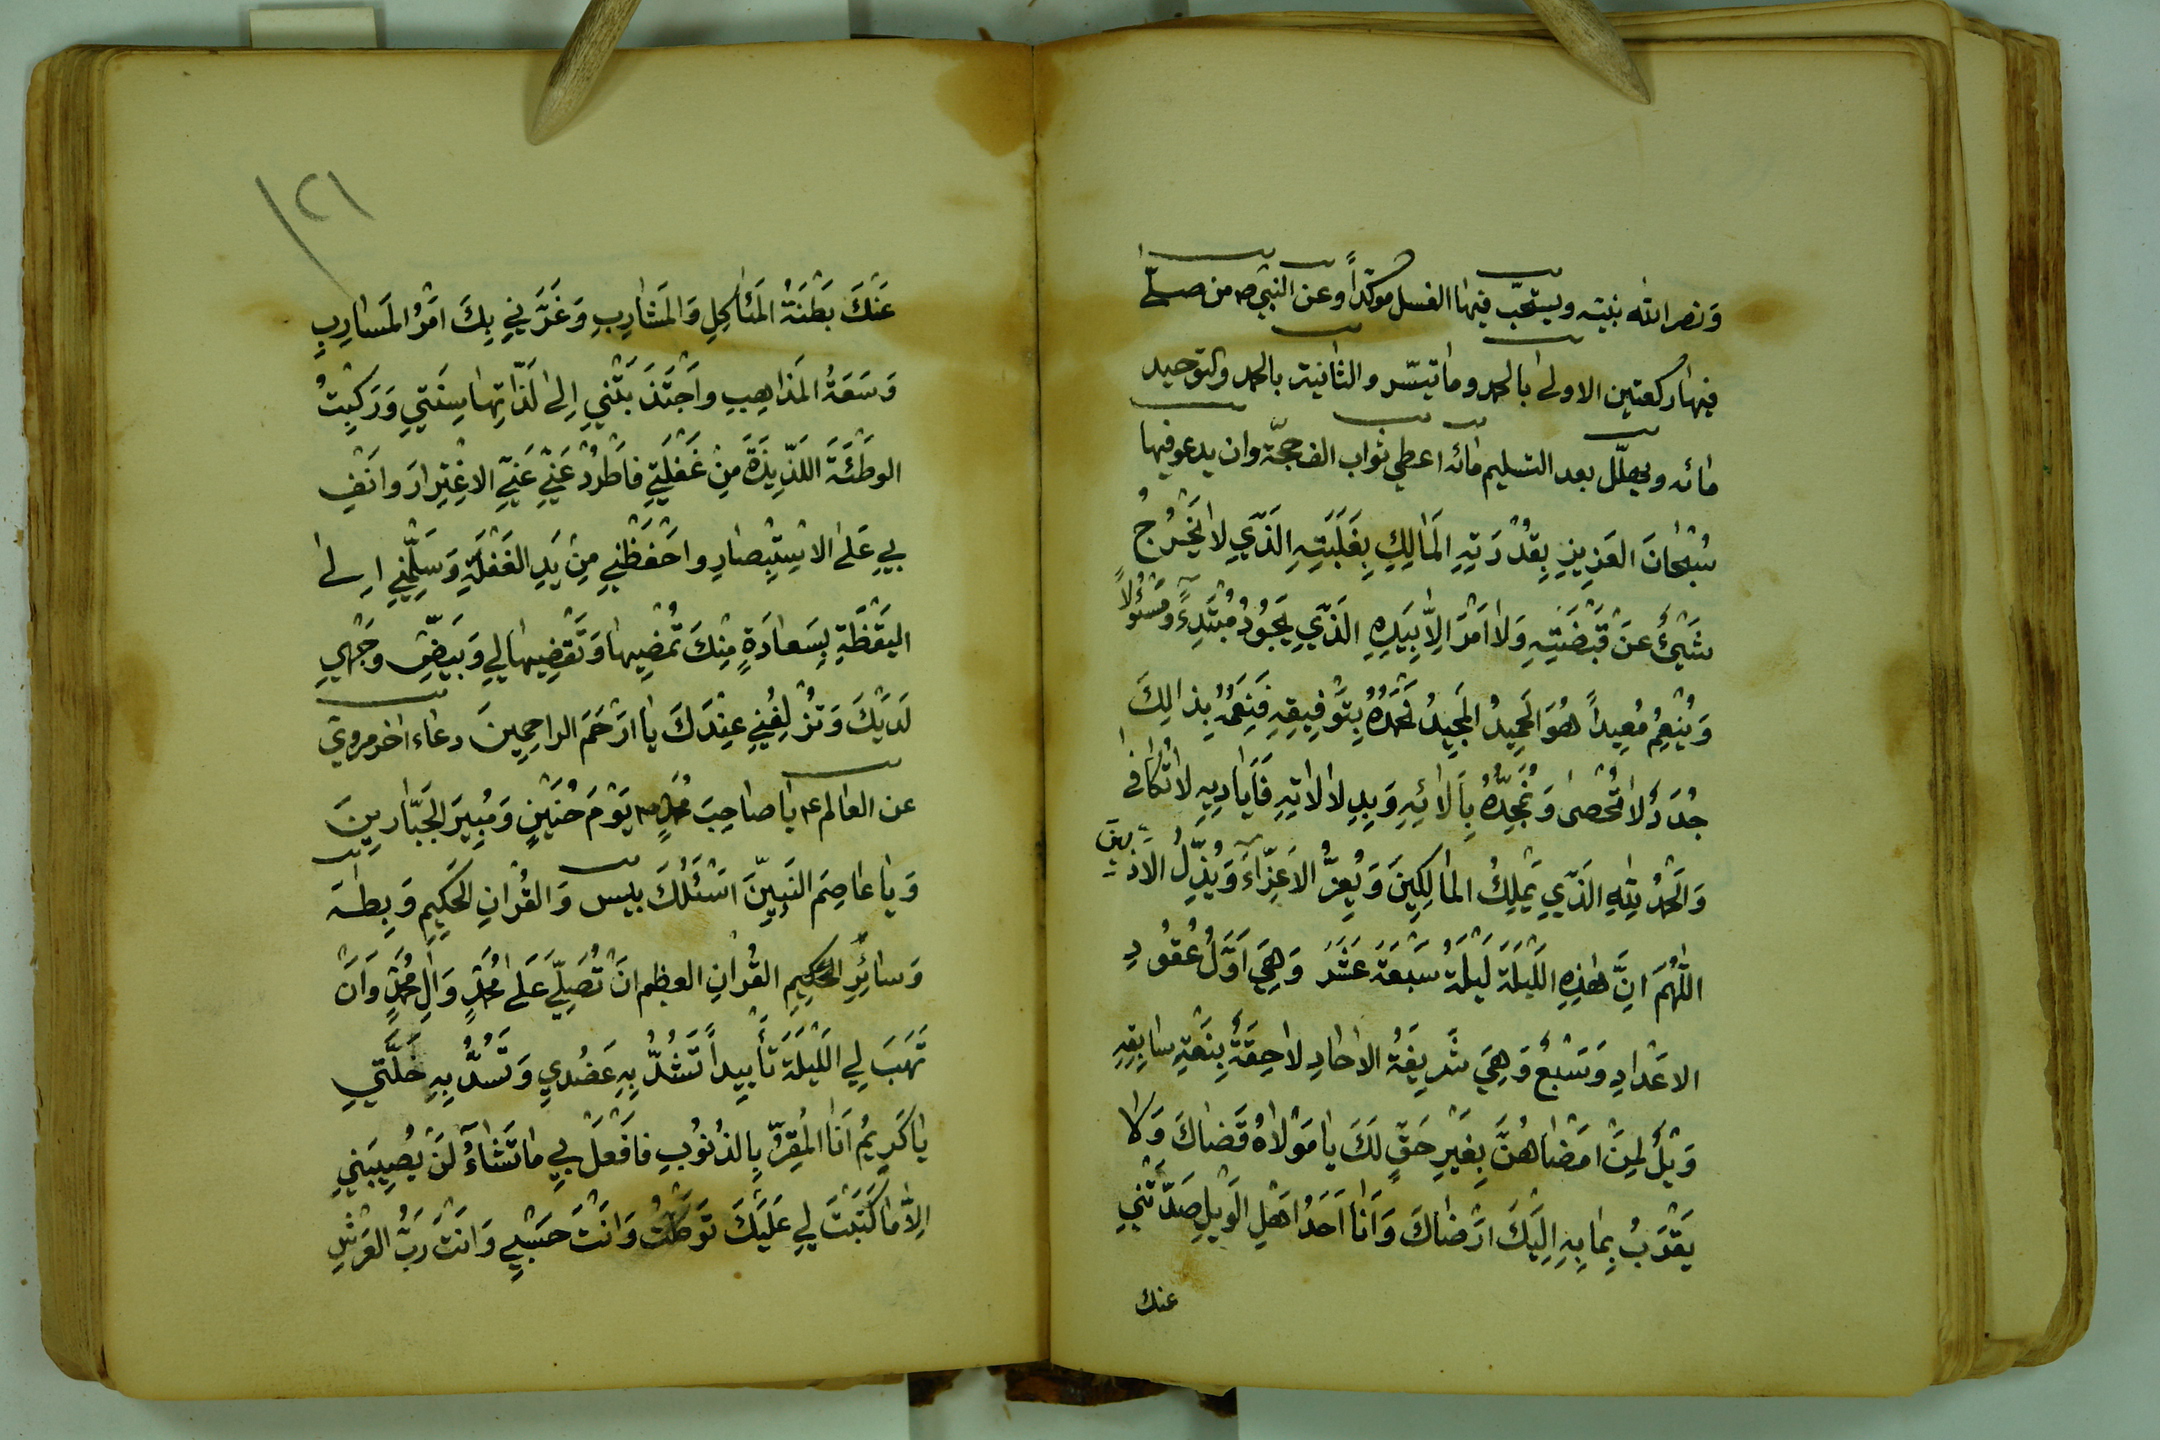 وَنصر الله نبيّه ويستحبّ فيها الغسل موكّداً وعن النبي ص من صلّى
فيها ركعتين الاولى بالحمد وما تيسّر والثانية بالحمد والتوحيد
مائه ويهلّل بعد التسليم مائه اعطي ثواب الف حجّة وان يدعو فيها
سُبْحٰانَ العَزِيزِ بِقُدْرَتِهِ المَالِكِ بِغَلَبَتِهِ الَذّي لا يَخْرُجُ
شَيْئٌ عَنْ قَبْضَتِهِ وَلا اَمْرَ اِلاّ بِيَدِهِ الَذّي يَجُودُ مُبْتَدِءً وَمَسْئُولاً
وَيُنْعِمُ مُعِيداً هُوَ الحَمِيدُ المَجِيدُ نَحْمَدُهُ بِتَوْفِيقِهِ فَنِعَمُهُ بِذالِكَ
جُدَدٌ لا تُحْصىٰ وَنُمَجِّدُهُ بِاَلائِهِ وَبِدِلالاتِهِ فَاَيادِيهِ لا تُكافىٰ
وَالحَمْدُ لِلّهِ الَذّي يَمْلِكُ المالِكِينَ وَيُعِزُّ الاَعِزّاءَ وَيُذِّلُ الاذَ
بين
اللّهُمَّ اِنَّ هٰذِهِ اللَيْلَةَ لَيْلَةُ سَبْعَةَ عَشَرَ وَهِيَ اَوَّلُ عُقُودِ
الاعْدٰادِ وَسَبْعٌ وَهِيَ شَريفَةُ الاحادِ لاحِقَةٌ بِنَعْتِ سابِقِهِ
وَيْلٌ لِمَنْ اَمْضٰاهُنَّ بِغَيْرِ حَقٍّ لَكَ يا مَوْلاهُ قَضاكَ وَلا
يَقْرَبُ بِما بِهِ اِلَيْكَ اَرْضاكَ وَاَنا اَحَدُ اَهْلِ الوَيْلِ صَدَّتْني
عنك
١٢١
عَنْكَ بَطْنَةُ المَئاكِلِ وَالمَشارِبِ وَغَرَّنيِ بِكَ اَمْرُ المَسارِبِ
وَسَعَةُ المَذاهِبِ واَجْتَذَبَتْني اِلىٰ لَذّاتِها سِنَتي وَرَكِبْتُ
الوَطئَةَ اللَذّيذَةَ مِنْ غَفْلَتي فاطْرُدْ عَنّي عَنّي الاغْتِرارَ وانْفِ
بي عَلىٰ الاسْتِبْصارِ واحْفَظْني مِنْ يَدِ الغَفْلَةِ وَسَلِّمْني اِلىٰ
اليَقْظَةِ بِسَعادَةٍ مِنْكَ تُمْضِيها وَتَقْضِيها لي وَبَيِّضْ وَجْهي
لَدَيْكَ وَتُزْلِفُني عِنْدَكَ يا اَرْحَمَ الراحِمِينَ دعاء اخر مروي
عن العالم ع يا صاحِبَ مُحَمَّدٍ ص يَوْمَ حُنَيْنٍ وَمُبِيرَ الجَبّارِينَ
وَيا عاصِمَ النَبِيّنَ اَسْئَلُكَ بيس وَالقُرْانِ الحَكِيمِ وَبِطٰهَ
وَسائِرِ الحَكِيمِ القُرْانِ العظيم اَنْ تُصَلّي عَلىٰ مُحَمَّدٍ وَالِ مُحَمَّدٍ وَاَنْ
تَهَبَ لي اللَيْلَةَ تَأْيِيداً تَشُدُّ بِهِ عَضُدي وَتَسُدُّ بِهِ خَلَّتي
يا كَرِيمُ اَنَا المُقِرُّ بِالذُنُوبِ فافْعَلْ بي ما تَشاءُ لَنْ يُصِيبَني
اِلاّ ما كَتَبْتَ لي عَلَيْكَ تَوَكَّلْتُ وَاَنْتَ حَسْبي وَاَنْتَ رَبُّ العَرْشِ